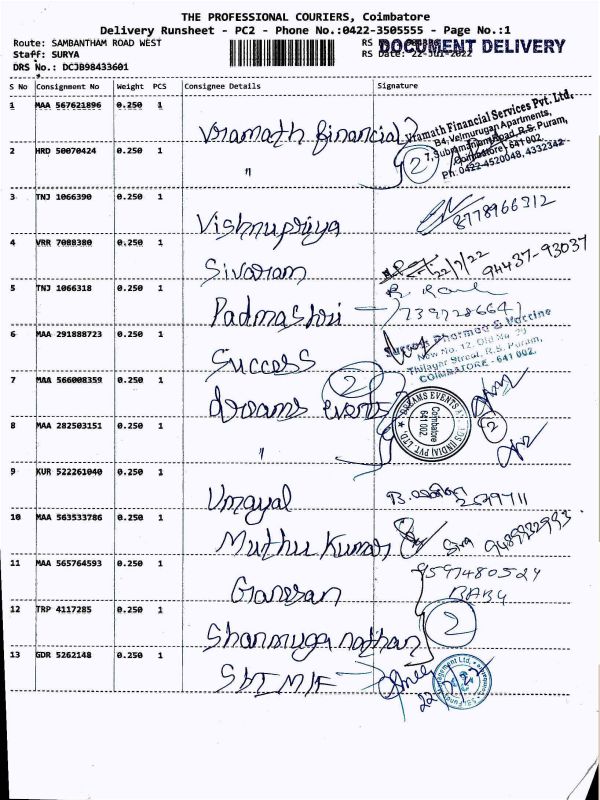 THE PROFESSIONAL COURIERS, Coimbatore
Delivery Runsheet - PC2 - Phone No.:0422-3505555 - Page No.:1
Route: SAMBANTHAM ROAD WEST
RS No
DOCUMENT DELIVERY
Staff: SURYA
RS Date: 22-Jul-2022
DRS No.: DCJB98433601
S No Consignment No Weight PCS Consignee Details Signature
1 MAA 567621896 0.250 1 Vramath financial
Vramath Financial Services Pvt. Ltd.,
B4, Velmurugan Apartments,
7, Subramaniam Road, R.S. Puram,
Coimbatore - 641 002.
Ph: 0422-4520048, 4332342
2 HRD 50070424 0.250 1 "
2
3 TNJ 1066390 0.250 1 Vishnupriya
8778966312
4 VRR 7088380 0.250 1 Sivaram
22/7/22 94437-93037
5 TNJ 1066318 0.250 1 Padmashri
7397286647
6 MAA 291888723 0.250 1 Success
Success Pharma & Vaccine
New No. 12, Old No. 29
Thilagar Street, R.S. Puram,
COIMBATORE - 641 002.
7 MAA 566008359 0.250 1 dreams events
2
DREAMS EVENTS
(INDIA) PVT. LTD.
Coimbatore
641 002
8 MAA 282503151 0.250 1 "
2
9 KUR 522261040 0.250 1 Umayal
10 MAA 563533786 0.250 1 Muthu Kumar
Siva
11 MAA 565764593 0.250 1 Ganesan
9597480524
BABU
12 TRP 4117285 0.250 1 Shanmuganathan
2
13 GDR 5262148 0.250 1 SBIMF